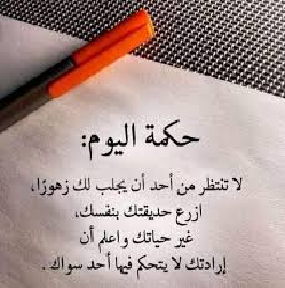 حكمة اليوم:
لا تنتظر من أحد أن يجلب لك زهورًا،
ازرع حديقتك بنفسك،
غير حياتك واعلم أن
إرادتك لا يتحكم فيها أحد سواك .